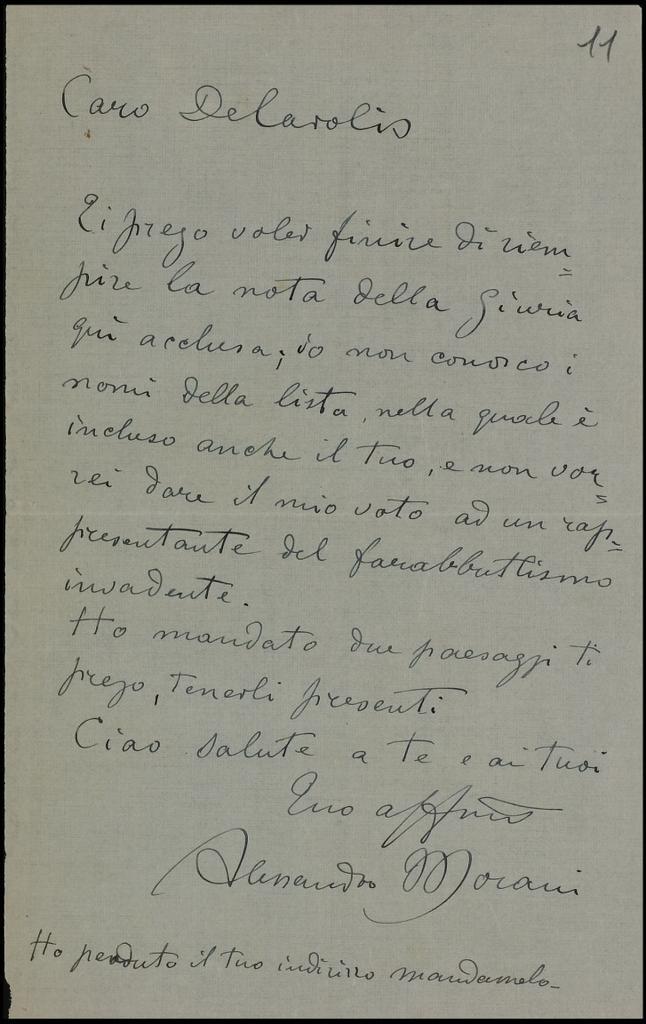 11
Caro Delarolis
Ti prego voler finire di riem=
pire la nota della Giuria
quì acclusa; io non conosco i
nomi della lista, nella quale è
incluso anche il tuo, e non vor=
rei dare il mio voto ad un rap=
presentante del farabbuttismo
invadente.
Ho mandato due paesaggi ti
prego, tenerli presenti
Ciao salute a te e ai tuoi
Tuo affmo
Alessandro Morani
Ho perduto il tuo indirizzo mandamelo-